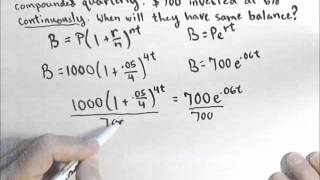 compounded quarterly. $700 invested at 6%
continuously. When will they have same balance?
B = P(1 + r/n)^nt B = Pe^rt
B = 1000(1 + .05/4)^4t B = 700e^.06t
1000(1 + .05/4)^4t / 700 = 700e^.06t / 700